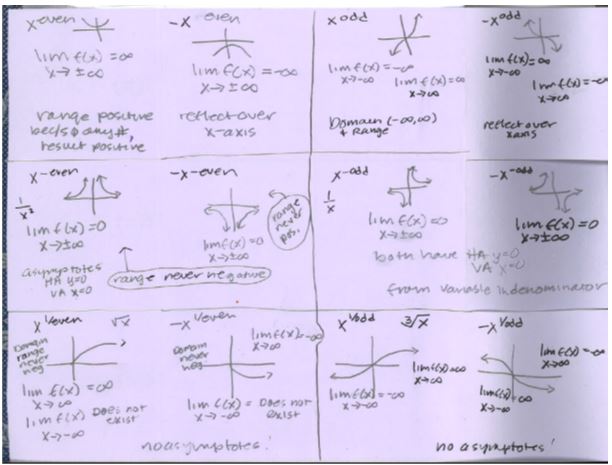 x^even
lim f(x) = ∞
x→ ±∞
range positive
bec/s any #,
result positive
-x^even
lim f(x) = -∞
x→ ±∞
reflect over
x-axis
x^odd
lim f(x) = -∞
x→-∞
lim f(x) = ∞
x→∞
Domain (-∞,∞)
+ Range
-x^odd
lim f(x) = ∞
x→-∞
lim f(x) = -∞
x→∞
reflect over
x axis
x^-even
1/x²
lim f(x) = 0
x→±∞
asymptotes
HA y=0
VA x=0
range never negative
-x^-even
lim f(x) = 0
x→±∞
range
never
pos.
x^-odd
1/x
lim f(x) = 0
x→±∞
-x^-odd
lim f(x) = 0
x→±∞
both have HA y=0
VA x=0
from variable in denominator
x^1/even √x
Domain
range
never
neg
lim f(x) = ∞
x→∞
lim f(x) Does not
x→-∞ exist
-x^1/even
Domain
never
neg
lim f(x) = -∞
x→∞
lim f(x) = Does not
x→-∞ exist
no asymptotes!
x^1/odd ³√x
lim f(x) = ∞
x→∞
lim f(x) = -∞
x→-∞
-x^1/odd
lim f(x) = -∞
x→∞
lim f(x) = ∞
x→-∞
no asymptotes!